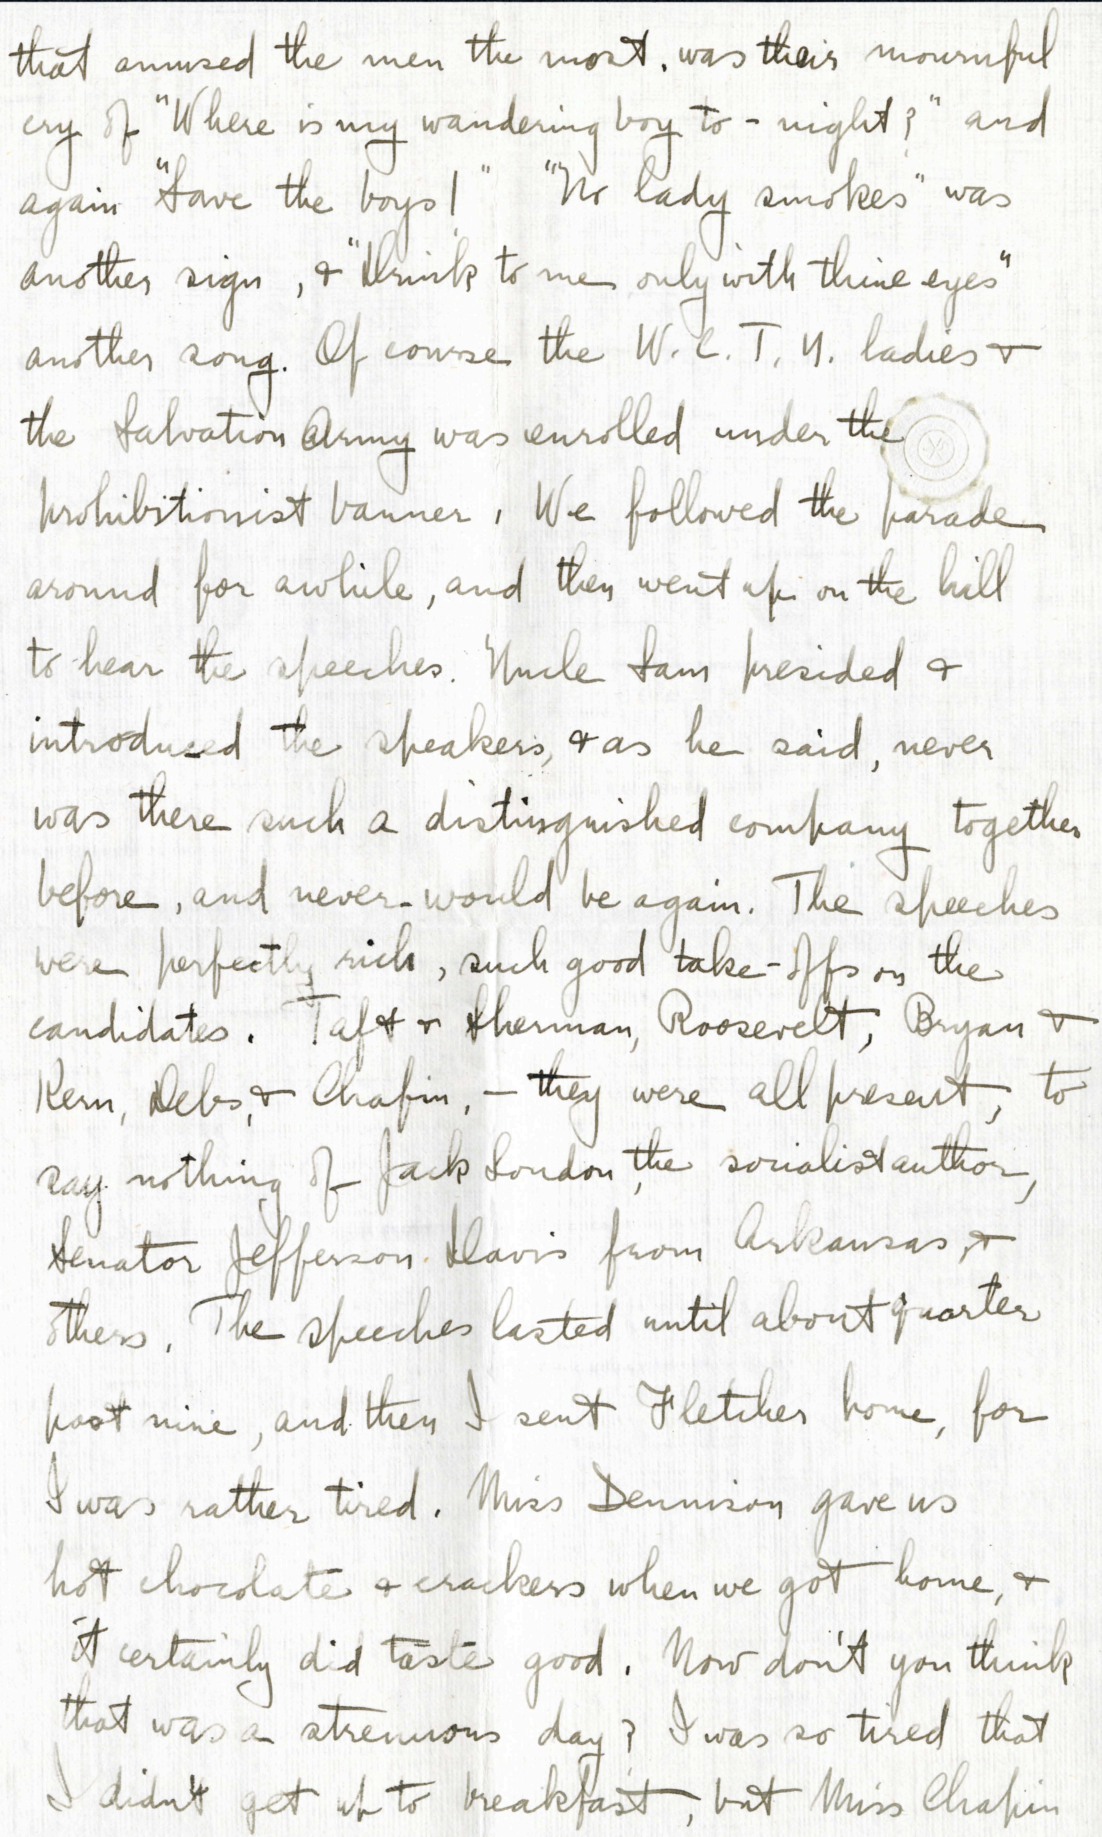 that amused the men the most. was their mournful
cry of "Where is my wandering boy to-night?" and
again "Save the boys!" "No lady smokes" was
another sign, & "Drink to me only with thine eyes"
another song. Of course the W. C. T. U. ladies &
the Salvation Army was enrolled under the
prohibitionist banner. We followed the parade
around for awhile, and then went up on the hill
to hear the speeches. Uncle Sam presided &
introduced the speakers, & as he said, never
was there such a distinguished company together
before, and never would be again. The speeches
were perfectly rich, such good take-offs on the
candidates. Taft & Sherman, Roosevelt, Bryan &
Kern, Debs, & Chafin, - they were all present, to
say nothing of Jack London, the socialist author,
Senator Jefferson Davis from Arkansas, &
others. The speeches lasted until about quarter
past nine, and then I sent Fletcher home, for
I was rather tired. Miss Dennison gave us
hot chocolate & crackers when we got home, &
it certainly did taste good. Now don't you think
that was a strenuous day? I was so tired that
I didn't get up to breakfast, but Miss Chapin